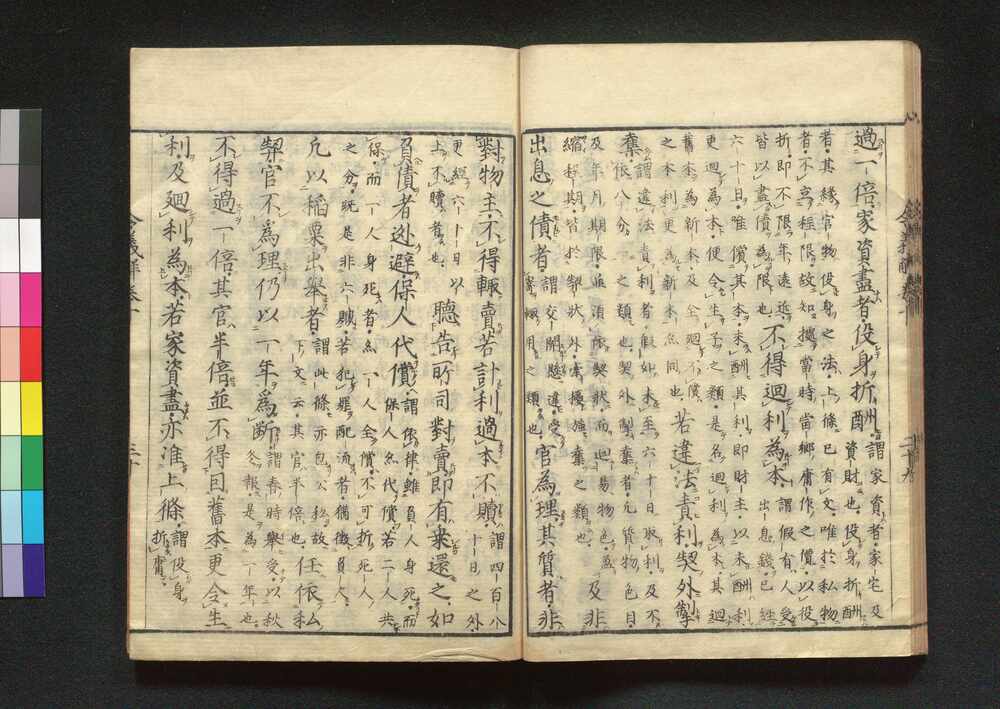 過一倍家資盡者役身折酬謂家資者家宅及
資財也役身折酬
者其縁官物役身之法上條已有文唯於私物
者不高程限故知據當時當鄉庸作之價以役
折即不限年遠近
皆以盡債為限也不得迴利為本謂假有人受
出息錢已經
六十日唯償其本未酬其利即財主以未酬利
更迴為本便令生子之類是名迴利為本其迴
舊本為新本及全迴不償
之本利更為新本亦同也若違法責利契外掣
奪謂違法責利者假如未至六十日取利及不
依八分一之類也契外掣奪者凡質物色目
及年月期限並須依契狀而迴易物色盈
縮程期皆於契狀外擾強奪之類也及非
出息之債者謂交關懸違受
寄輙用之類也官為理其質者非
對物主不得輙賣若計利過本不贖謂四百八
十日之外
更經六十日以
上不贖者也聽告所司對賣即有乗還之如
負債者逃避保人代償謂依律雖負人身死而
保人亦代償若二人共
保而一人身死者亦一人全償不可折死人
之分既是非六贓若犯罪配流者猶徵負人
凡以稻粟出舉者謂此條亦包公私故
下文云其官半倍也任依私
契官不為理仍以一年為斷謂春時舉受以秋
冬報是為一年也
不得過一倍其官半倍並不得因舊本更令生
利及廻利為本若家資盡亦准上條謂役身
折庸